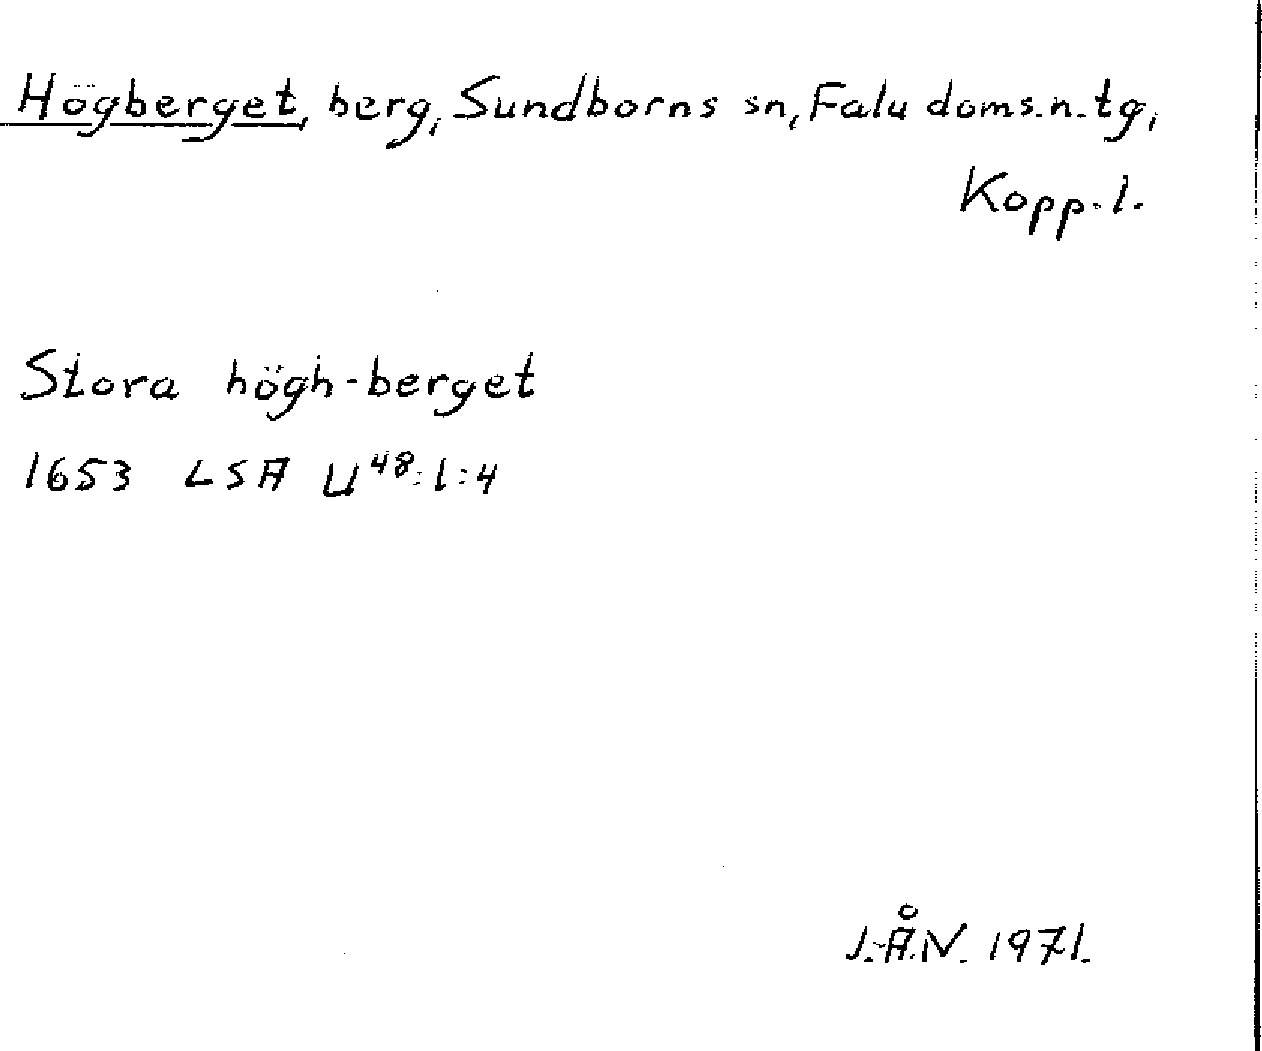 Högberget, berg, Sundborns sn, Falu doms.n.tg,
Kopp.l.
Stora högh-berget
1653 LSA U48:1:4
J.Å.N. 1971.